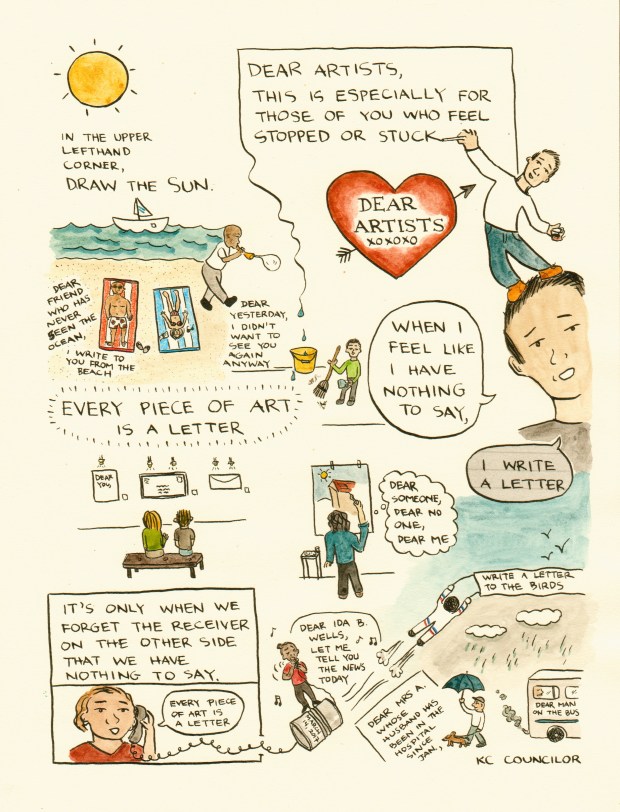 DEAR ARTISTS,
THIS IS ESPECIALLY FOR
THOSE OF YOU WHO FEEL
STOPPED OR STUCK
IN THE UPPER
LEFTHAND
CORNER,
DRAW THE SUN.
DEAR
ARTISTS
XOXOXO
DEAR
FRIEND
WHO HAS
NEVER
SEEN THE
OCEAN,
I WRITE TO
YOU FROM THE
BEACH
DEAR
YESTERDAY,
I DIDN'T
WANT TO
SEE YOU
AGAIN
ANYWAY
WHEN I
FEEL LIKE
I HAVE
NOTHING
TO SAY,
EVERY PIECE OF ART
IS A LETTER
I WRITE
A LETTER
DEAR
YOU,
DEAR
SOMEONE,
DEAR NO
ONE,
DEAR ME
WRITE A LETTER
TO THE BIRDS
IT'S ONLY WHEN WE
FORGET THE RECEIVER
ON THE OTHER SIDE
THAT WE HAVE
NOTHING TO SAY.
EVERY PIECE
OF ART IS
A LETTER
DEAR IDA B.
WELLS,
LET ME
TELL YOU
THE NEWS
TODAY
DEAR MRS A.
WHOSE
HUSBAND HAS
BEEN IN THE
HOSPITAL
SINCE
JAN.,
DEAR MAN
ON THE BUS
KC COUNCILOR